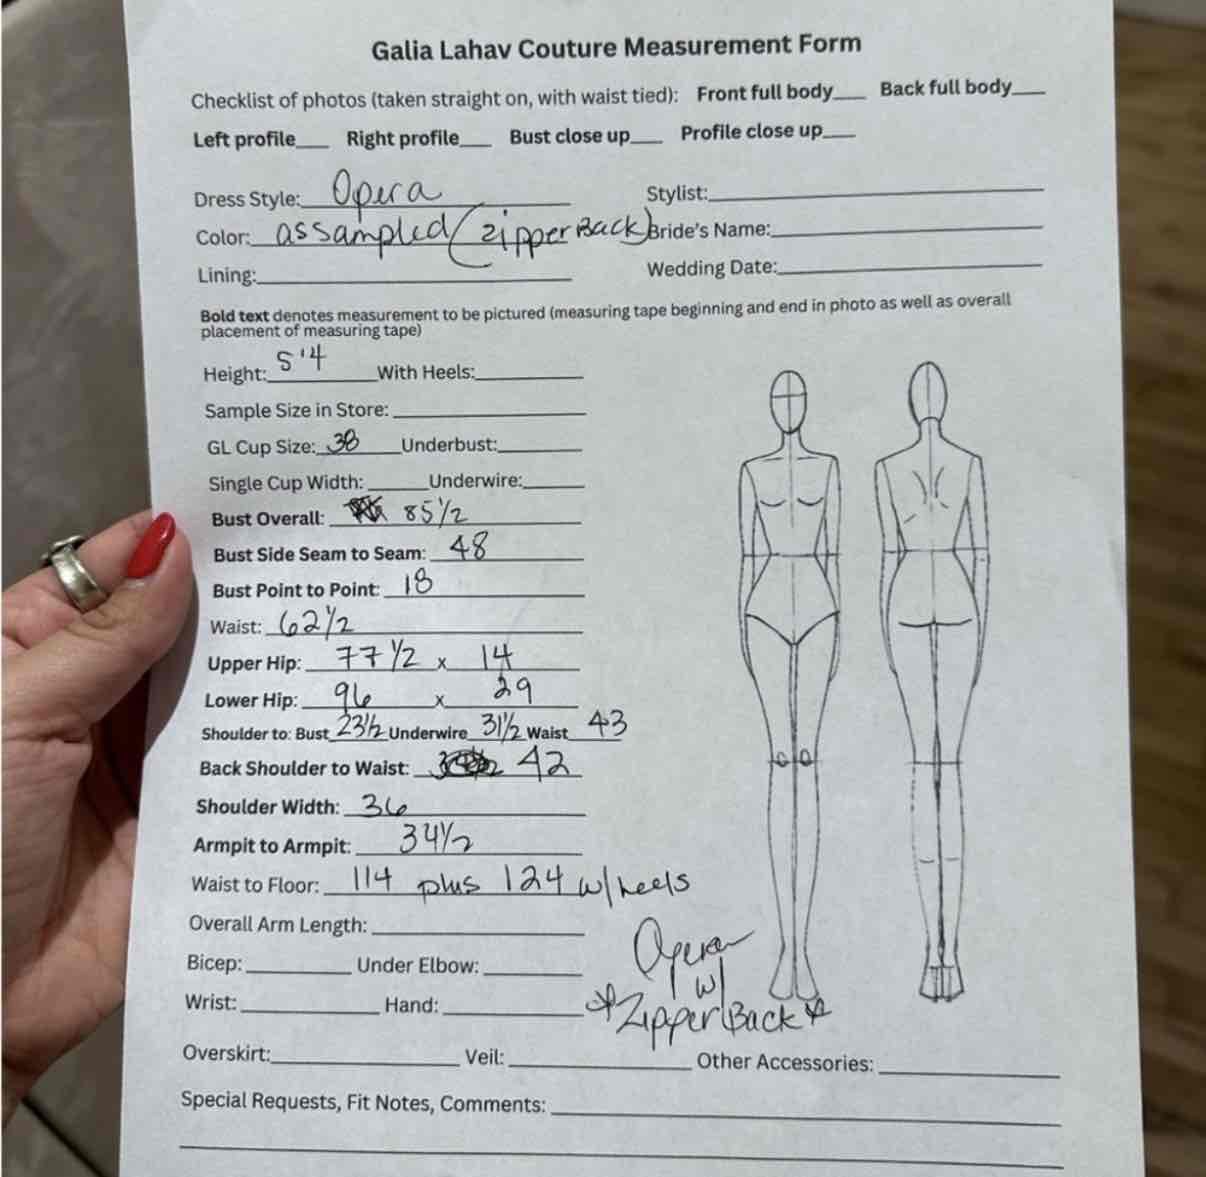 Galia Lahav Couture Measurement Form
Checklist of photos (taken straight on, with waist tied): Front full body___ Back full body___
Left profile___ Right profile___ Bust close up___ Profile close up___
Dress Style: Opera Stylist:
Color: as sampled (zipper Back) Bride's Name:
Lining: Wedding Date:
Bold text denotes measurement to be pictured (measuring tape beginning and end in photo as well as overall
placement of measuring tape)
Height: 5'4 With Heels:
Sample Size in Store:
GL Cup Size: 3B Underbust:
Single Cup Width: Underwire:
Bust Overall: 85 1/2
Bust Side Seam to Seam: 48
Bust Point to Point: 18
Waist: 62 1/2
Upper Hip: 77 1/2 x 14
Lower Hip: 96 x 29
Shoulder to: Bust 23 1/2 Underwire 31 1/2 Waist 43
Back Shoulder to Waist: 42
Shoulder Width: 36
Armpit to Armpit: 34 1/2
Waist to Floor: 114 plus 124 w/heels
Overall Arm Length:
Bicep: Under Elbow:
Opera
w/
Wrist: Hand:
*Zipper Back*
Overskirt: Veil: Other Accessories:
Special Requests, Fit Notes, Comments: